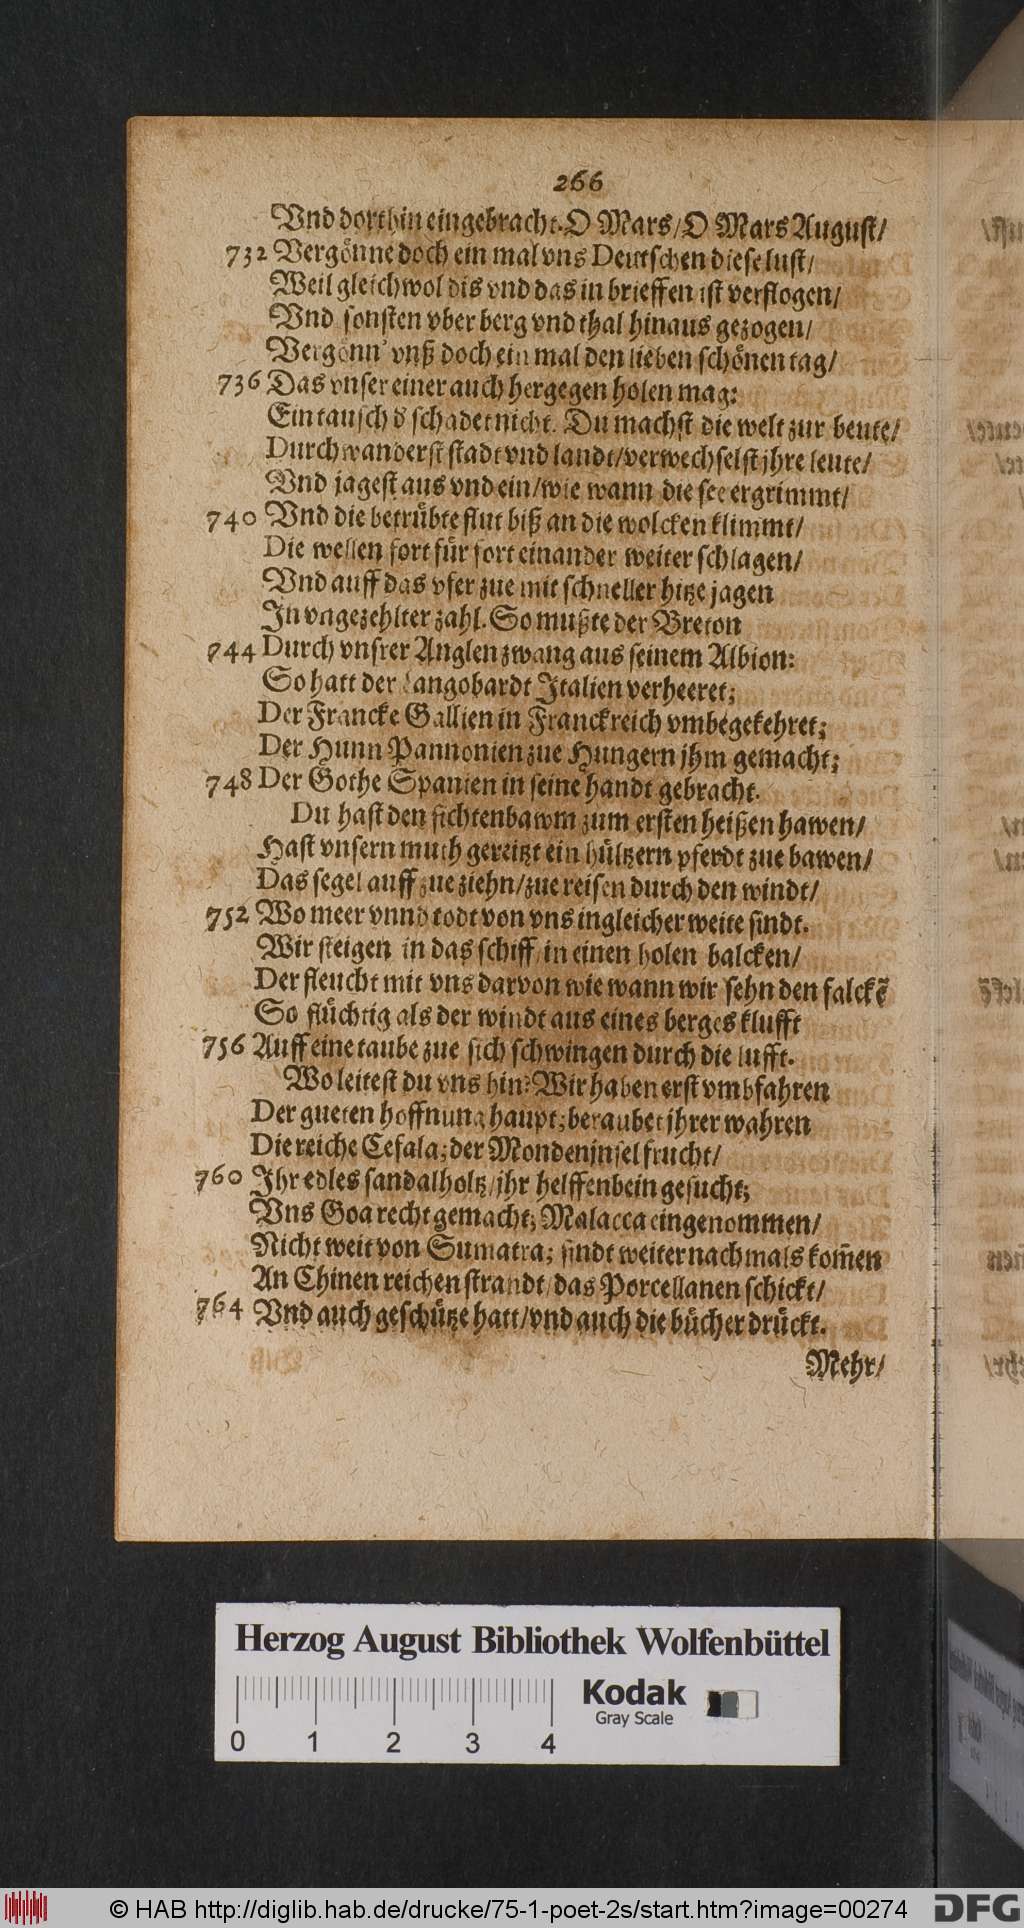 266
Vnd dorthin eingebracht. O Mars/O Mars August/
732 Vergönne doch ein mal vns Deutschen diese lust/
Weil gleichwol dis vnd das in brieffen ist verflogen/
Vnd sonsten vber berg vnd thal hinaus gezogen/
Vergönn' vnß doch ein mal den lieben schönen tag/
736 Das vnser einer auch hergegen holen mag:
Ein tausch d̕ schadet nicht. Du machst die welt zur beute/
Durchwanderst stadt vnd landt/verwechselst jhre leute/
Vnd jagest aus vnd ein/wie wann die see ergrimmt/
740 Vnd die betrübte flut biß an die wolcken klimmt/
Die wellen fort für fort einander weiter schlagen/
Vnd auff das vfer zue mit schneller hitze jagen
In vngezehlter zahl. So mußte der Breton
744 Durch vnsrer Anglen zwang aus seinem Albion:
So hatt der Langobardt Italien verheeret;
Der Francke Gallien in Franckreich vmbgekehret;
Der Hunn Pannonien zue Hungern jhm gemacht;
748 Der Gothe Spanien in seine handt gebracht.
Du hast den fichtenbawm zum ersten heißen hawen/
Hast vnsern muth gereitzt ein hültzern pferdt zue bawen/
Das segel auff zue ziehn/zue reisen durch den windt/
752 Wo meer vnnd todt von vns in gleicher weite sindt.
Wir steigen in das schiff/in einen holen balcken/
Der fleucht mit vns darvon wie wann wir sehn den falckẽ
So flüchtig als der windt aus eines berges klufft
756 Auff eine taube zue sich schwingen durch die lufft.
Wo leitest du vns hin? Wir haben erst vmbfahren
Der gueten hoffnung haupt; beraubet jhrer wahren
Die reiche Cefala; der Mondeninsel frucht/
760 Ihr edles sandalholtz/jhr helffenbein gesucht;
Vns Goa recht gemacht; Malacca eingenommen/
Nicht weit von Sumatra; sindt weiter nachmals kom̃en
An Chinen reichen strandt/das Porcellanen schickt/
764 Vnd auch geschütze hatt/vnd auch die bücher drückt.
Mehr/
Herzog August Bibliothek Wolfenbüttel
Kodak
Gray Scale
0 1 2 3 4
© HAB http://diglib.hab.de/drucke/75-1-poet-2s/start.htm?image=00274
DFG